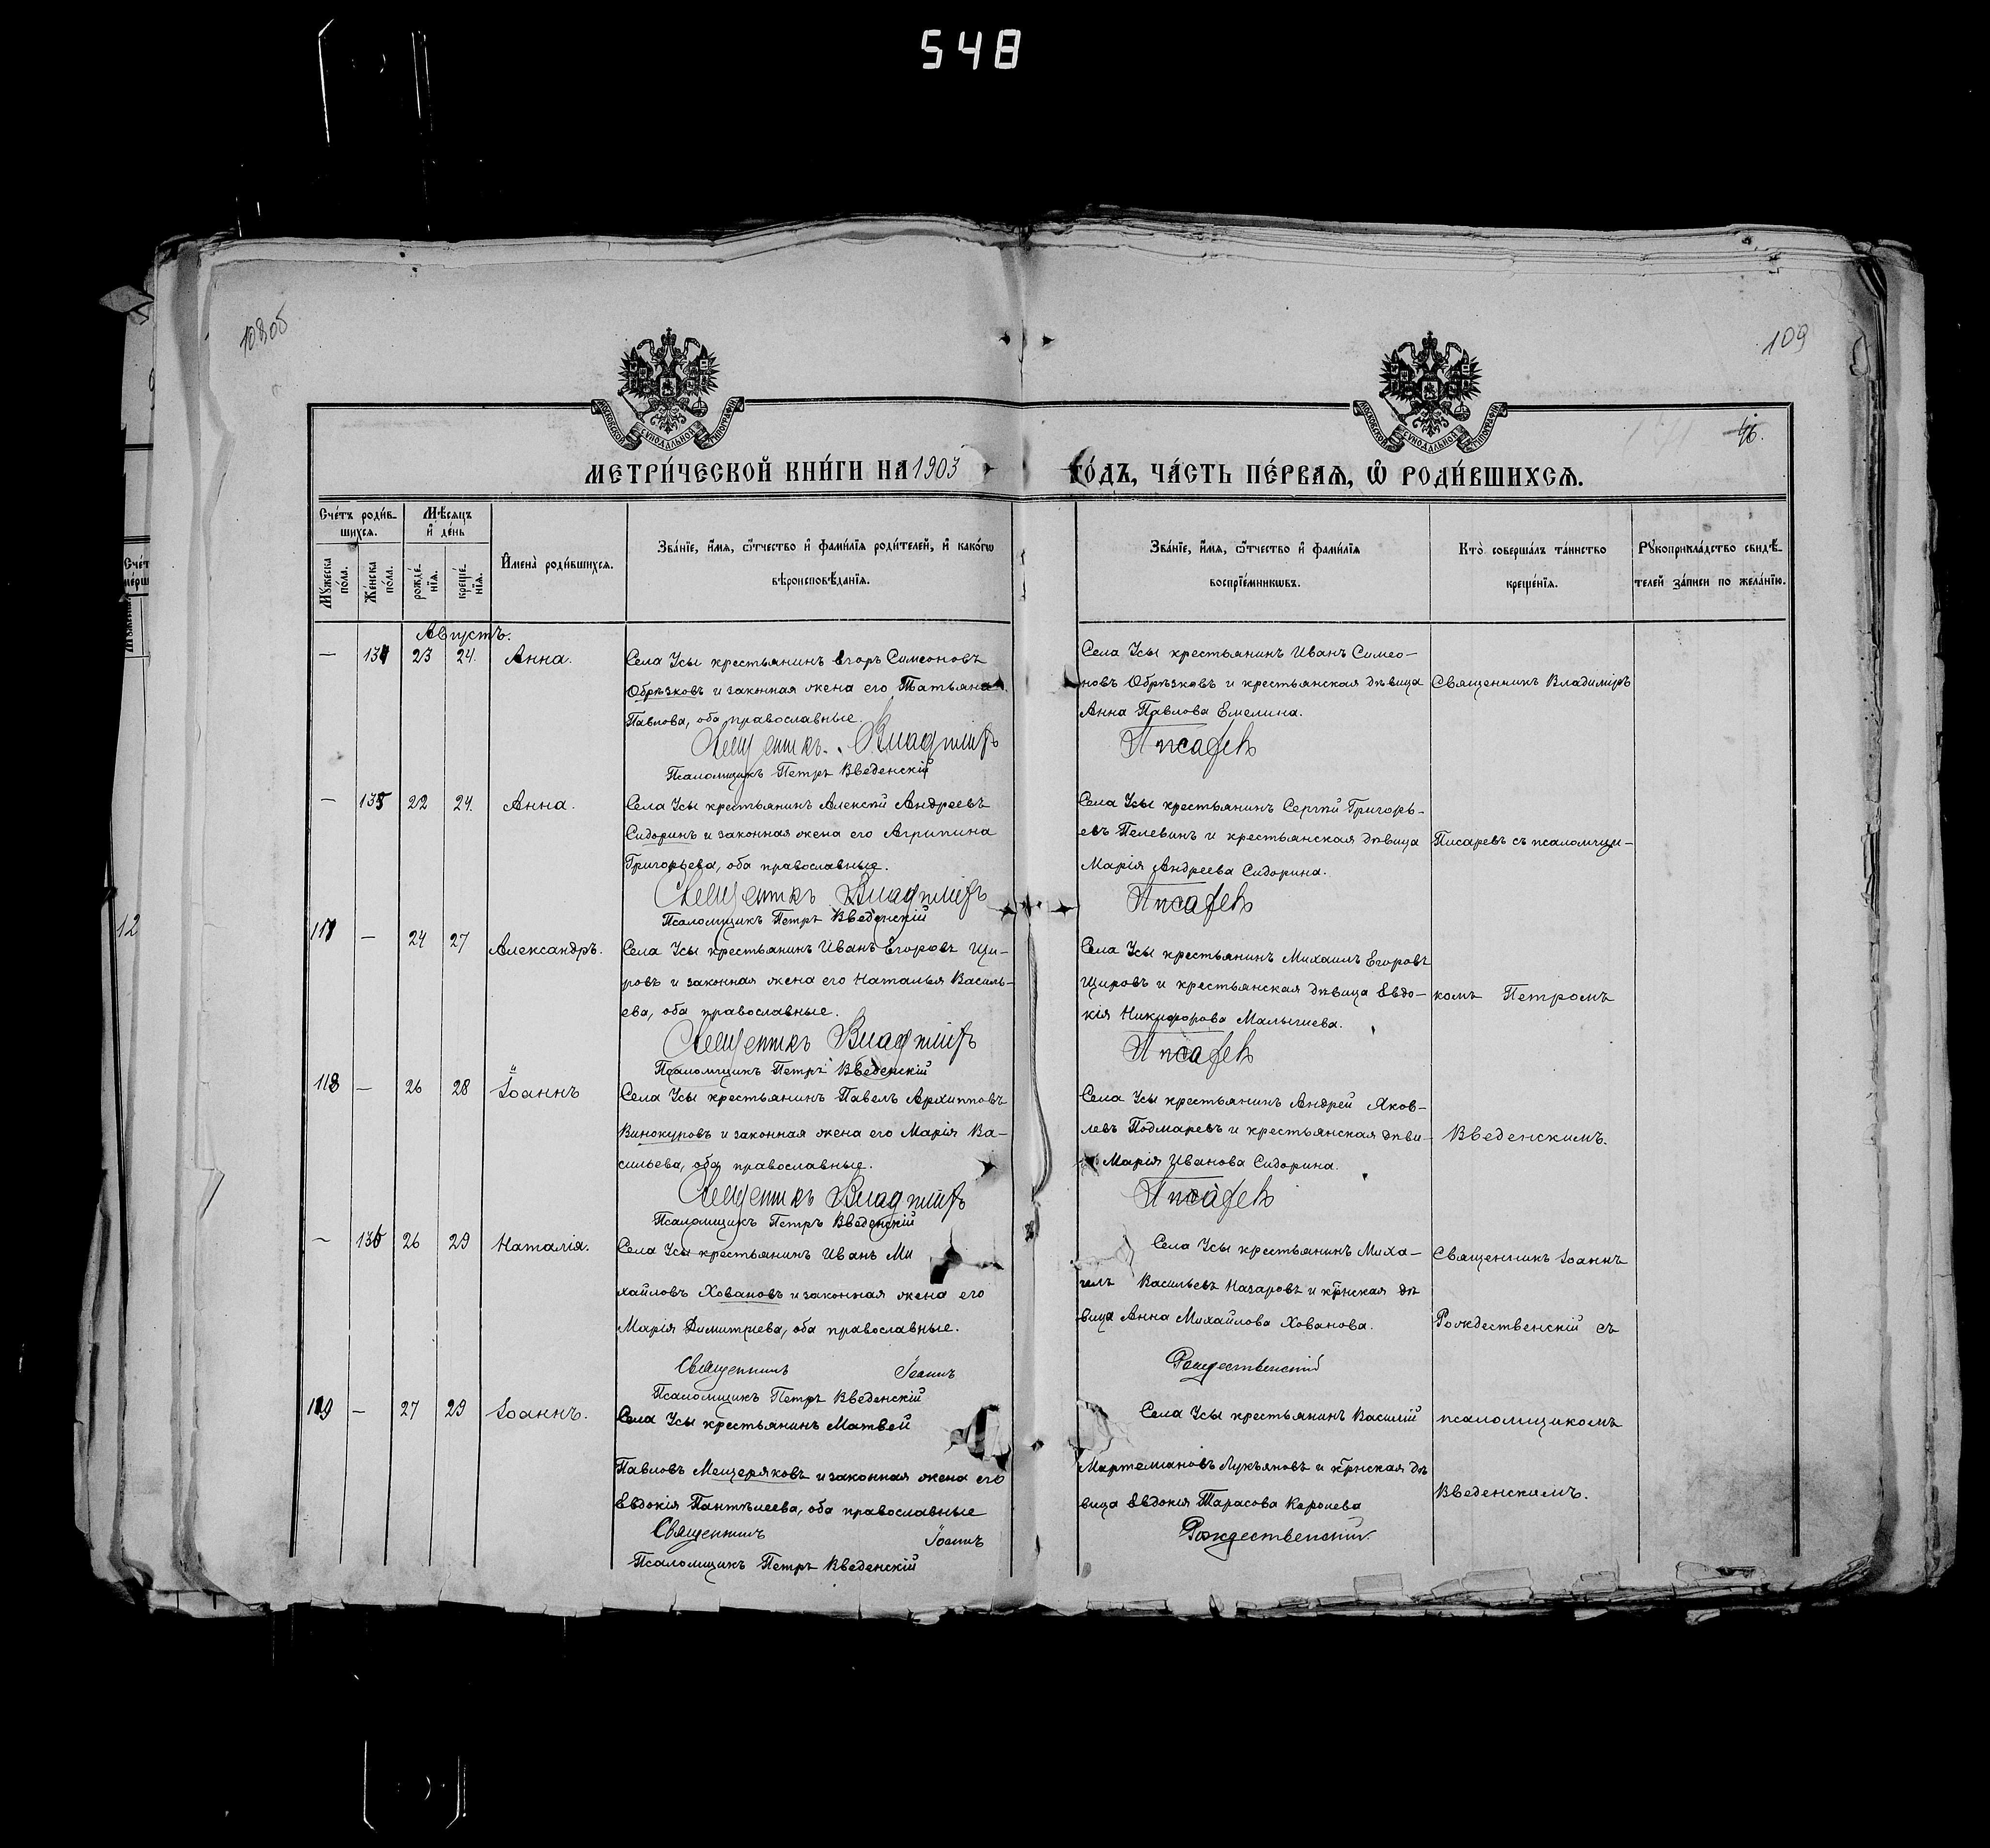 548
108об
109
МОСКОВСКОЙ СѴНОДАЛЬНОЙ ТИПОГРАФІИ
МОСКОВСКОЙ СѴНОДАЛЬНОЙ ТИПОГРАФІИ
МЕТРИ́ЧЕСКОЙ КНИ́ГИ НА 1903 ГО́ДЪ, ЧА́СТЬ ПЕ́РВАѦ, Ѽ РОДИ́ВШИХСѦ.
Сче́тъ роди́в-
шихсѧ.
Мꙋ́жеска по́ла.
Же́нска по́ла.
Мѣ́сѧцъ
и҆ де́нь
рожде́-нїѧ.
креще́-нїѧ.
И҆мена̀ роди́вшихсѧ.
Зва́нїе, и҆́мѧ, ѻ҆́тчество и҆ фами́лїѧ роди́телей, и҆ како́гѡ
вѣроисповѣ́данїѧ.
Зва́нїе, и҆́мѧ, ѻ҆́тчество и҆ фами́лїѧ
воспрїе́мникѡвъ.
Кто̀ соверша́лъ та́инство
креще́нїѧ.
Рꙋкоприкла́дство свидѣ́-
телей за́писи по жела́нїю.
Августъ.
— 134 23 24. Анна.
Села Усы крестьянинъ Егоръ Симеоновъ
Обрѣзковъ и законная жена его Татьяна
Павлова, оба православные.
Священникъ Владиміръ
Псаломщикъ Петръ Введенскій
Села Усы крестьянинъ Иванъ Симео-
новъ Обрѣзковъ и крестьянская дѣвица
Анна Павлова Емелина.
Писаревъ
Священникъ Владиміръ
— 135 22 24. Анна.
Села Усы крестьянинъ Алексѣй Андреевъ
Сидоринъ и законная жена его Агрипина
Григорьева, оба православные.
Священникъ Владиміръ
Псаломщикъ Петръ Введенскій
Села Усы крестьянинъ Сергѣй Григорь-
евъ Пелевинъ и крестьянская дѣвица
Марія Андреева Сидорина.
Писаревъ
Писаревъ съ псаломщи-
117 — 24 27 Александръ.
Села Усы крестьянинъ Иванъ Егоровъ Щи-
ровъ и законная жена его Наталья Василь-
ева, оба православные.
Священникъ Владиміръ
Псаломщикъ Петръ Введенскій
Села Усы крестьянинъ Михаилъ Егоровъ
Щировъ и крестьянская дѣвица Евдо-
кія Никифорова Малышева.
Писаревъ
комъ Петромъ
118 — 26 28 Іоаннъ
Села Усы крестьянинъ Павелъ Архипповъ
Винокуровъ и законная жена его Марія Ва-
сильева, оба православные.
Священникъ Владиміръ
Псаломщикъ Петръ Введенскій
Села Усы крестьянинъ Андрей Яков-
левъ Подмаревъ и крестьянская дѣви-
Марія Иванова Сидорина.
Писаревъ
Введенскимъ.
— 136 26 29 Наталія.
Села Усы крестьянинъ Иванъ Ми
хайловъ Ховановъ и законная жена его
Марія Димитріева, оба православные.
Священникъ Іоаннъ
Псаломщикъ Петръ Введенскій
Села Усы крестьянинъ Миха-
илъ Васильевъ Назаровъ и кр̃нская дѣ
вица Анна Михайлова Хованова.
Рождественскій
Священникъ Іоаннъ
Рождественскій съ
119 — 27 29 Іоаннъ.
Села Усы крестьянинъ Матвей
Павловъ Мещеряковъ и законная жена его
Евдокія Пантѣлеева, оба православные
Священникъ Іоаннъ
Псаломщикъ Петръ Введенскій
Села Усы крестьянинъ Василій
Мартеміановъ Лукьяновъ и кр̃нская дѣ
вица Евдокія Тарасова Королева
Рождественскій
псаломщикомъ
Введенскимъ.